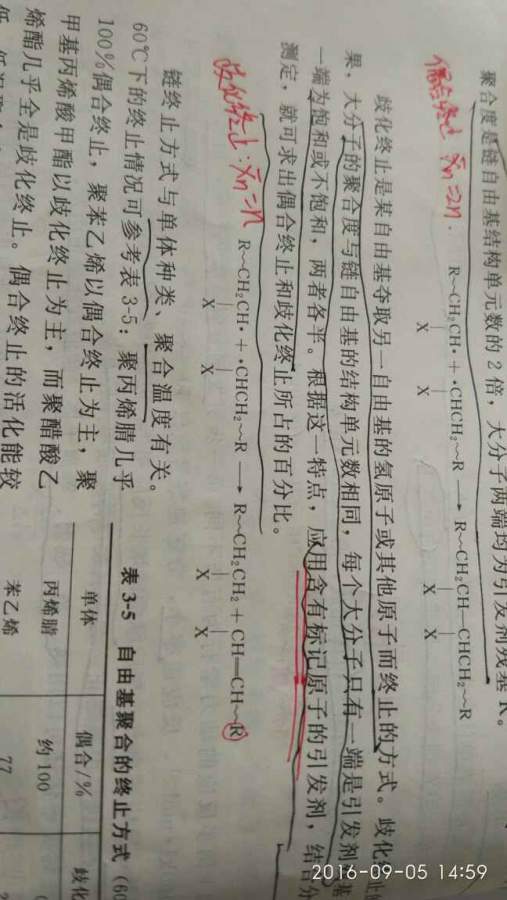 聚合度是链自由基结构单元数的2倍，大分子两端均为引发剂残基R。
偶合终止 X̄n=2n.
R～CH₂CH• + •CHCH₂～R ⟶ R～CH₂CH—CHCH₂～R
X X X X
歧化终止是某自由基夺取另一自由基的氢原子或其他原子而终止的方式。歧化终止的
果，大分子的聚合度与链自由基的结构单元数相同，每个大分子只有一端是引发剂 基
一端为饱和或不饱和，两者各半。根据这一特点，应用含有标记原子的引发剂，结合分
测定，就可求出偶合终止和歧化终止所占的百分比。
歧化终止: X̄n=n
R～CH₂CH• + •CHCH₂～R ⟶ R～CH₂CH₂ + CH=CH～R
X X X X
链终止方式与单体种类、聚合温度有关。
60℃下的终止情况可参考表3-5：聚丙烯腈几乎
100%偶合终止，聚苯乙烯以偶合终止为主，聚
甲基丙烯酸甲酯以歧化终止为主，而聚醋酸乙
烯酯几乎全是歧化终止。偶合终止的活化能较
表3-5 自由基聚合的终止方式（60
单体 偶合/% 歧化
丙烯腈 约100
苯乙烯 77
2016-09-05 14:59